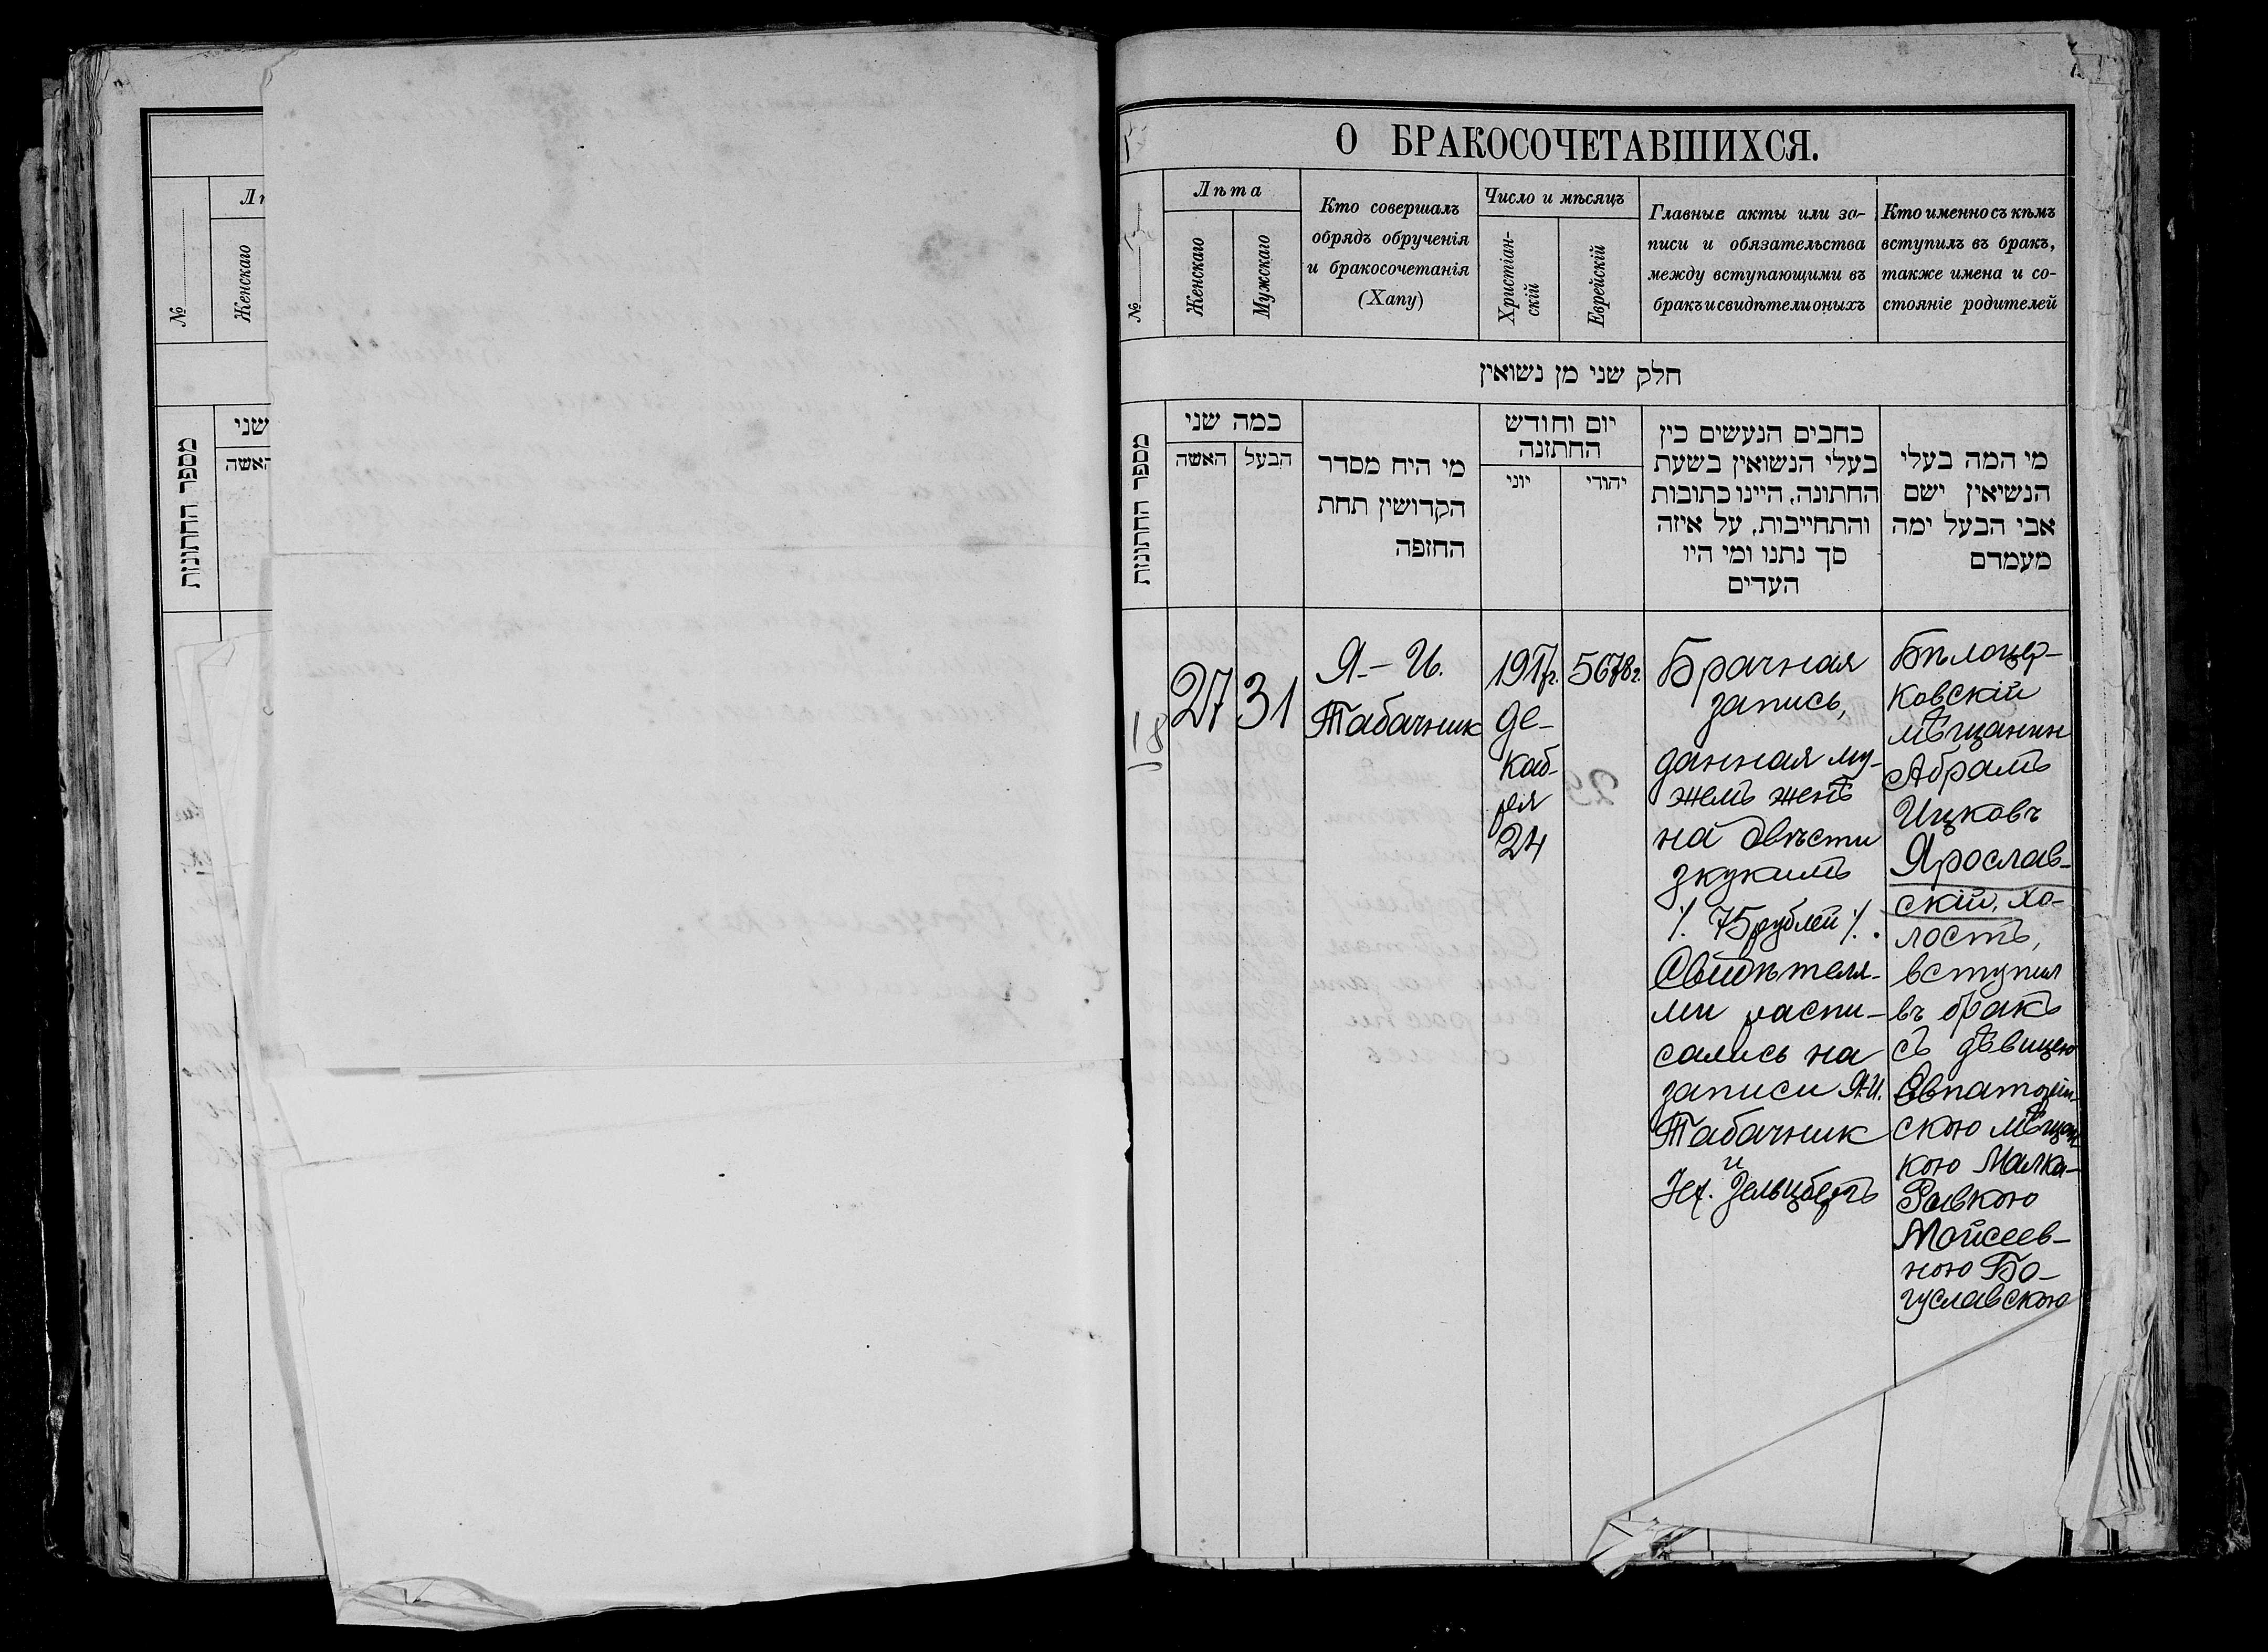 №
Лѣ
Женскаго
מספר החתונות
שני
האשה
О БРАКОСОЧЕТАВШИХСЯ.
№
Лѣта
Женскаго
Мужскаго
Кто совершалъ
обрядъ обрученія
и бракосочетанія
(Хапу)
Число и мѣсяцъ
Христіан-
скій
Еврейскій
Главные акты или за-
писи и обязательства
между вступающими въ
бракъ и свидѣтели оныхъ
Кто именно съ кѣмъ
вступилъ въ бракъ,
также имена и со-
стояніе родителей
חלק שני מן נשואין
מספר החתונות
כמה שני
האשה
הבעל
מי היח מסדר
הקדושין תחת
החופה
יום וחודש
החתונה
יוני
יהודי
כתבים הנעשים בין
בעלי הנשואין בשעת
החתונה, היינו כתובות
והתחייבות, על איזה
סך נתנו ומי היו
העדים
מי המה בעלי
הנשיאין ישם
אבי הבעל ימה
מעמדם
18
27
31
Я-И.
Табачник
1917г.
де-
каб-
ря
24
5678г.
Брачная
запись,
данная му-
жемъ женѣ
на двѣсти
зкукимъ
⁒ 75 рублей ⁒.
Свидѣтеля-
ми распи-
сались на
записи Я-И.
Табачник
и
Зельцберъ
Бѣлоцер-
ковскій
мѣщанин
Абрамъ
Ицковъ
Ярослав-
скій, хо-
лостъ,
вступил
въ бракъ
съ дѣвицею
Евпаторій-
скою мѣщан
кою Малка-
Ривкою
Мойсеев-
ною Бо-
гуславскою